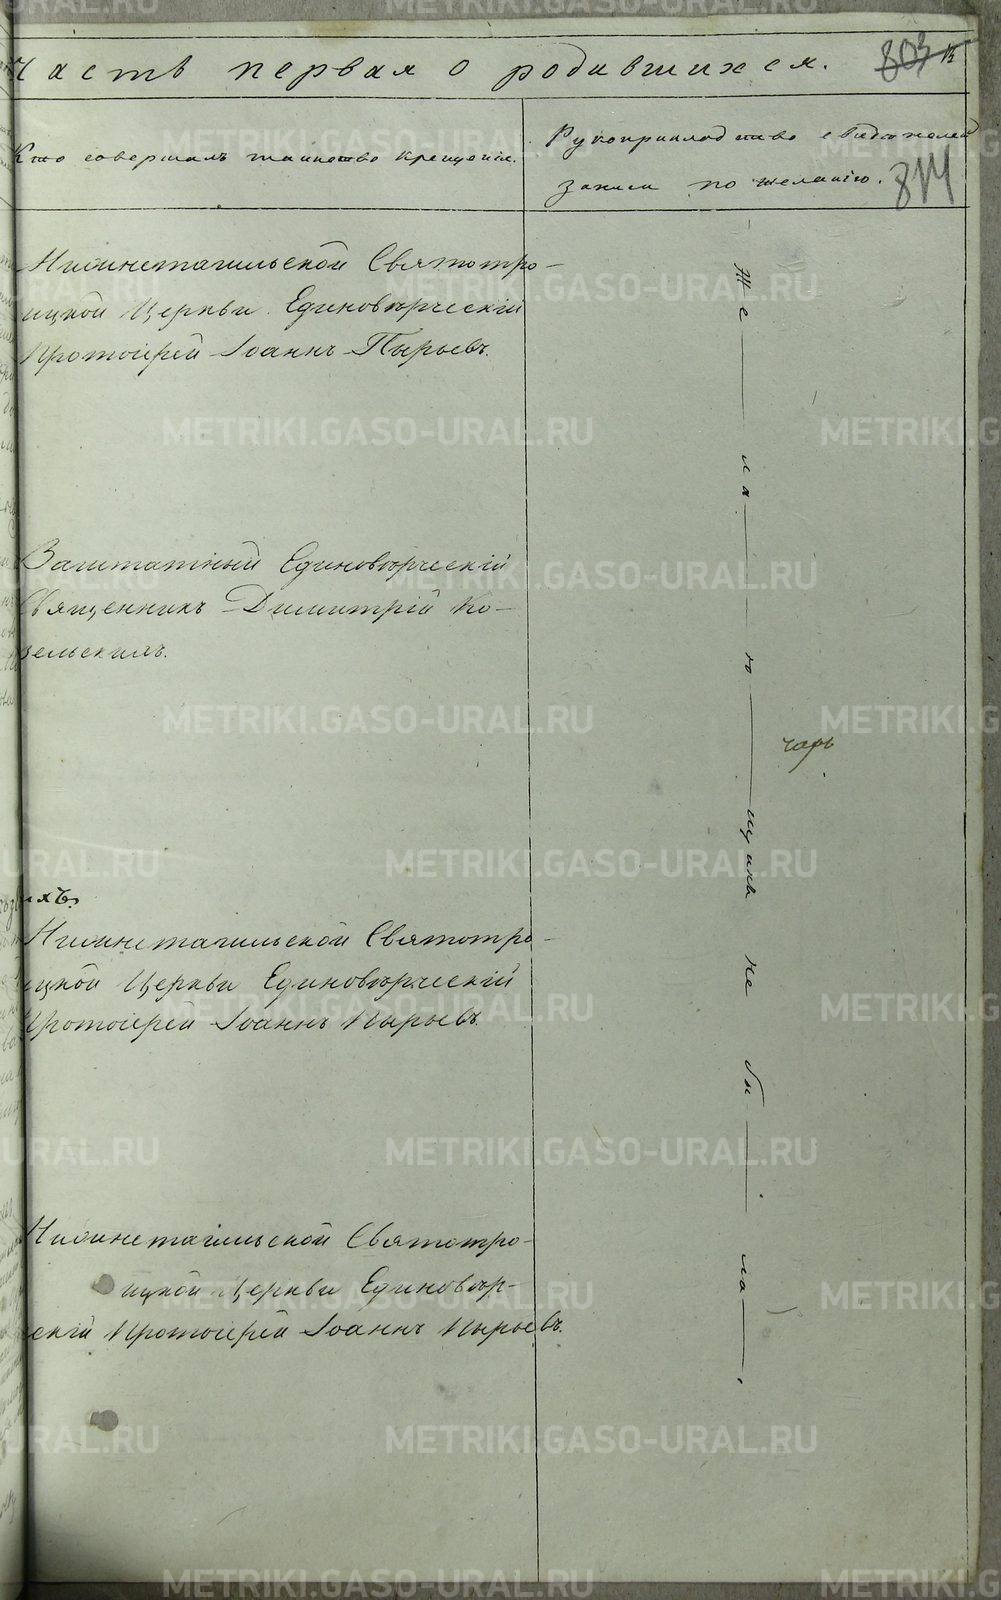 Часть первая о родившихся.
803
12
814
Кто совершалъ таинство крещенія.
Рукоприкладство свидѣтелей
записи по желанію.
Нижнетагильской Святотро-
ицкой Церкви Единовѣрческій
Протоіерей Іоаннъ Пырьевъ.
Заштатный Единовѣрческій
Священникъ Димитрій Ко-
зельскимъ.
ихъ.
Нижнетагильской Святотро-
ицкой Церкви Единовѣрческій
Протоіерей Іоаннъ Пырьевъ.
Нижнетагильской Святотро-
ицкой Церкви Единовѣр-
скій Протоіерей Іоаннъ Пырьевъ.
Же-ла-ю-щихъ не бы-ла-.
чарь
METRIKI.GASO-URAL.RU